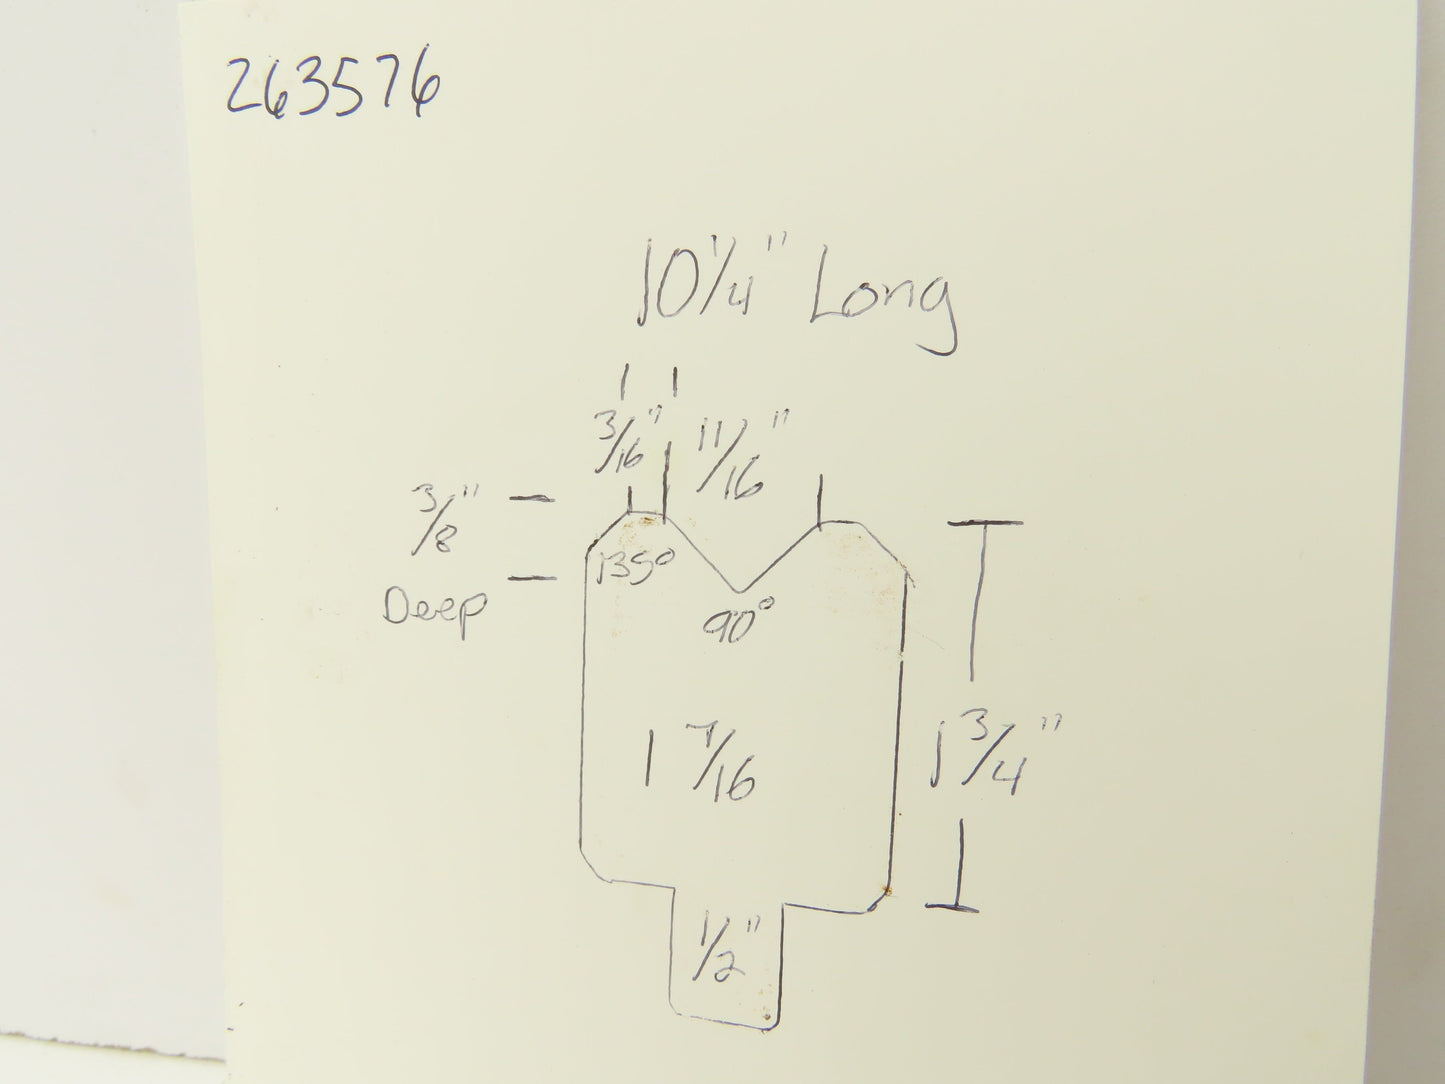 263576
10 1/4" Long
3/16"
11/16"
3/8"
Deep
135°
90°
1 7/16
1 3/4"
1/2"